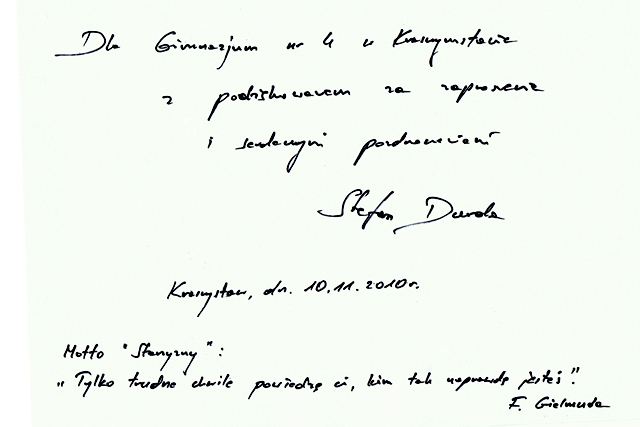 Dla Gimnazjum nr 4 w Krasnymstawie
z podziękowaniem za zaproszenie
i serdecznymi pozdrowieniami
Stefan Darda
Krasnystaw, dn. 10.11.2010r.
Motto "Starzyzny":
„Tylko trudne chwile powiedzą ci, kim tak naprawdę jesteś".
F. Gielmuda